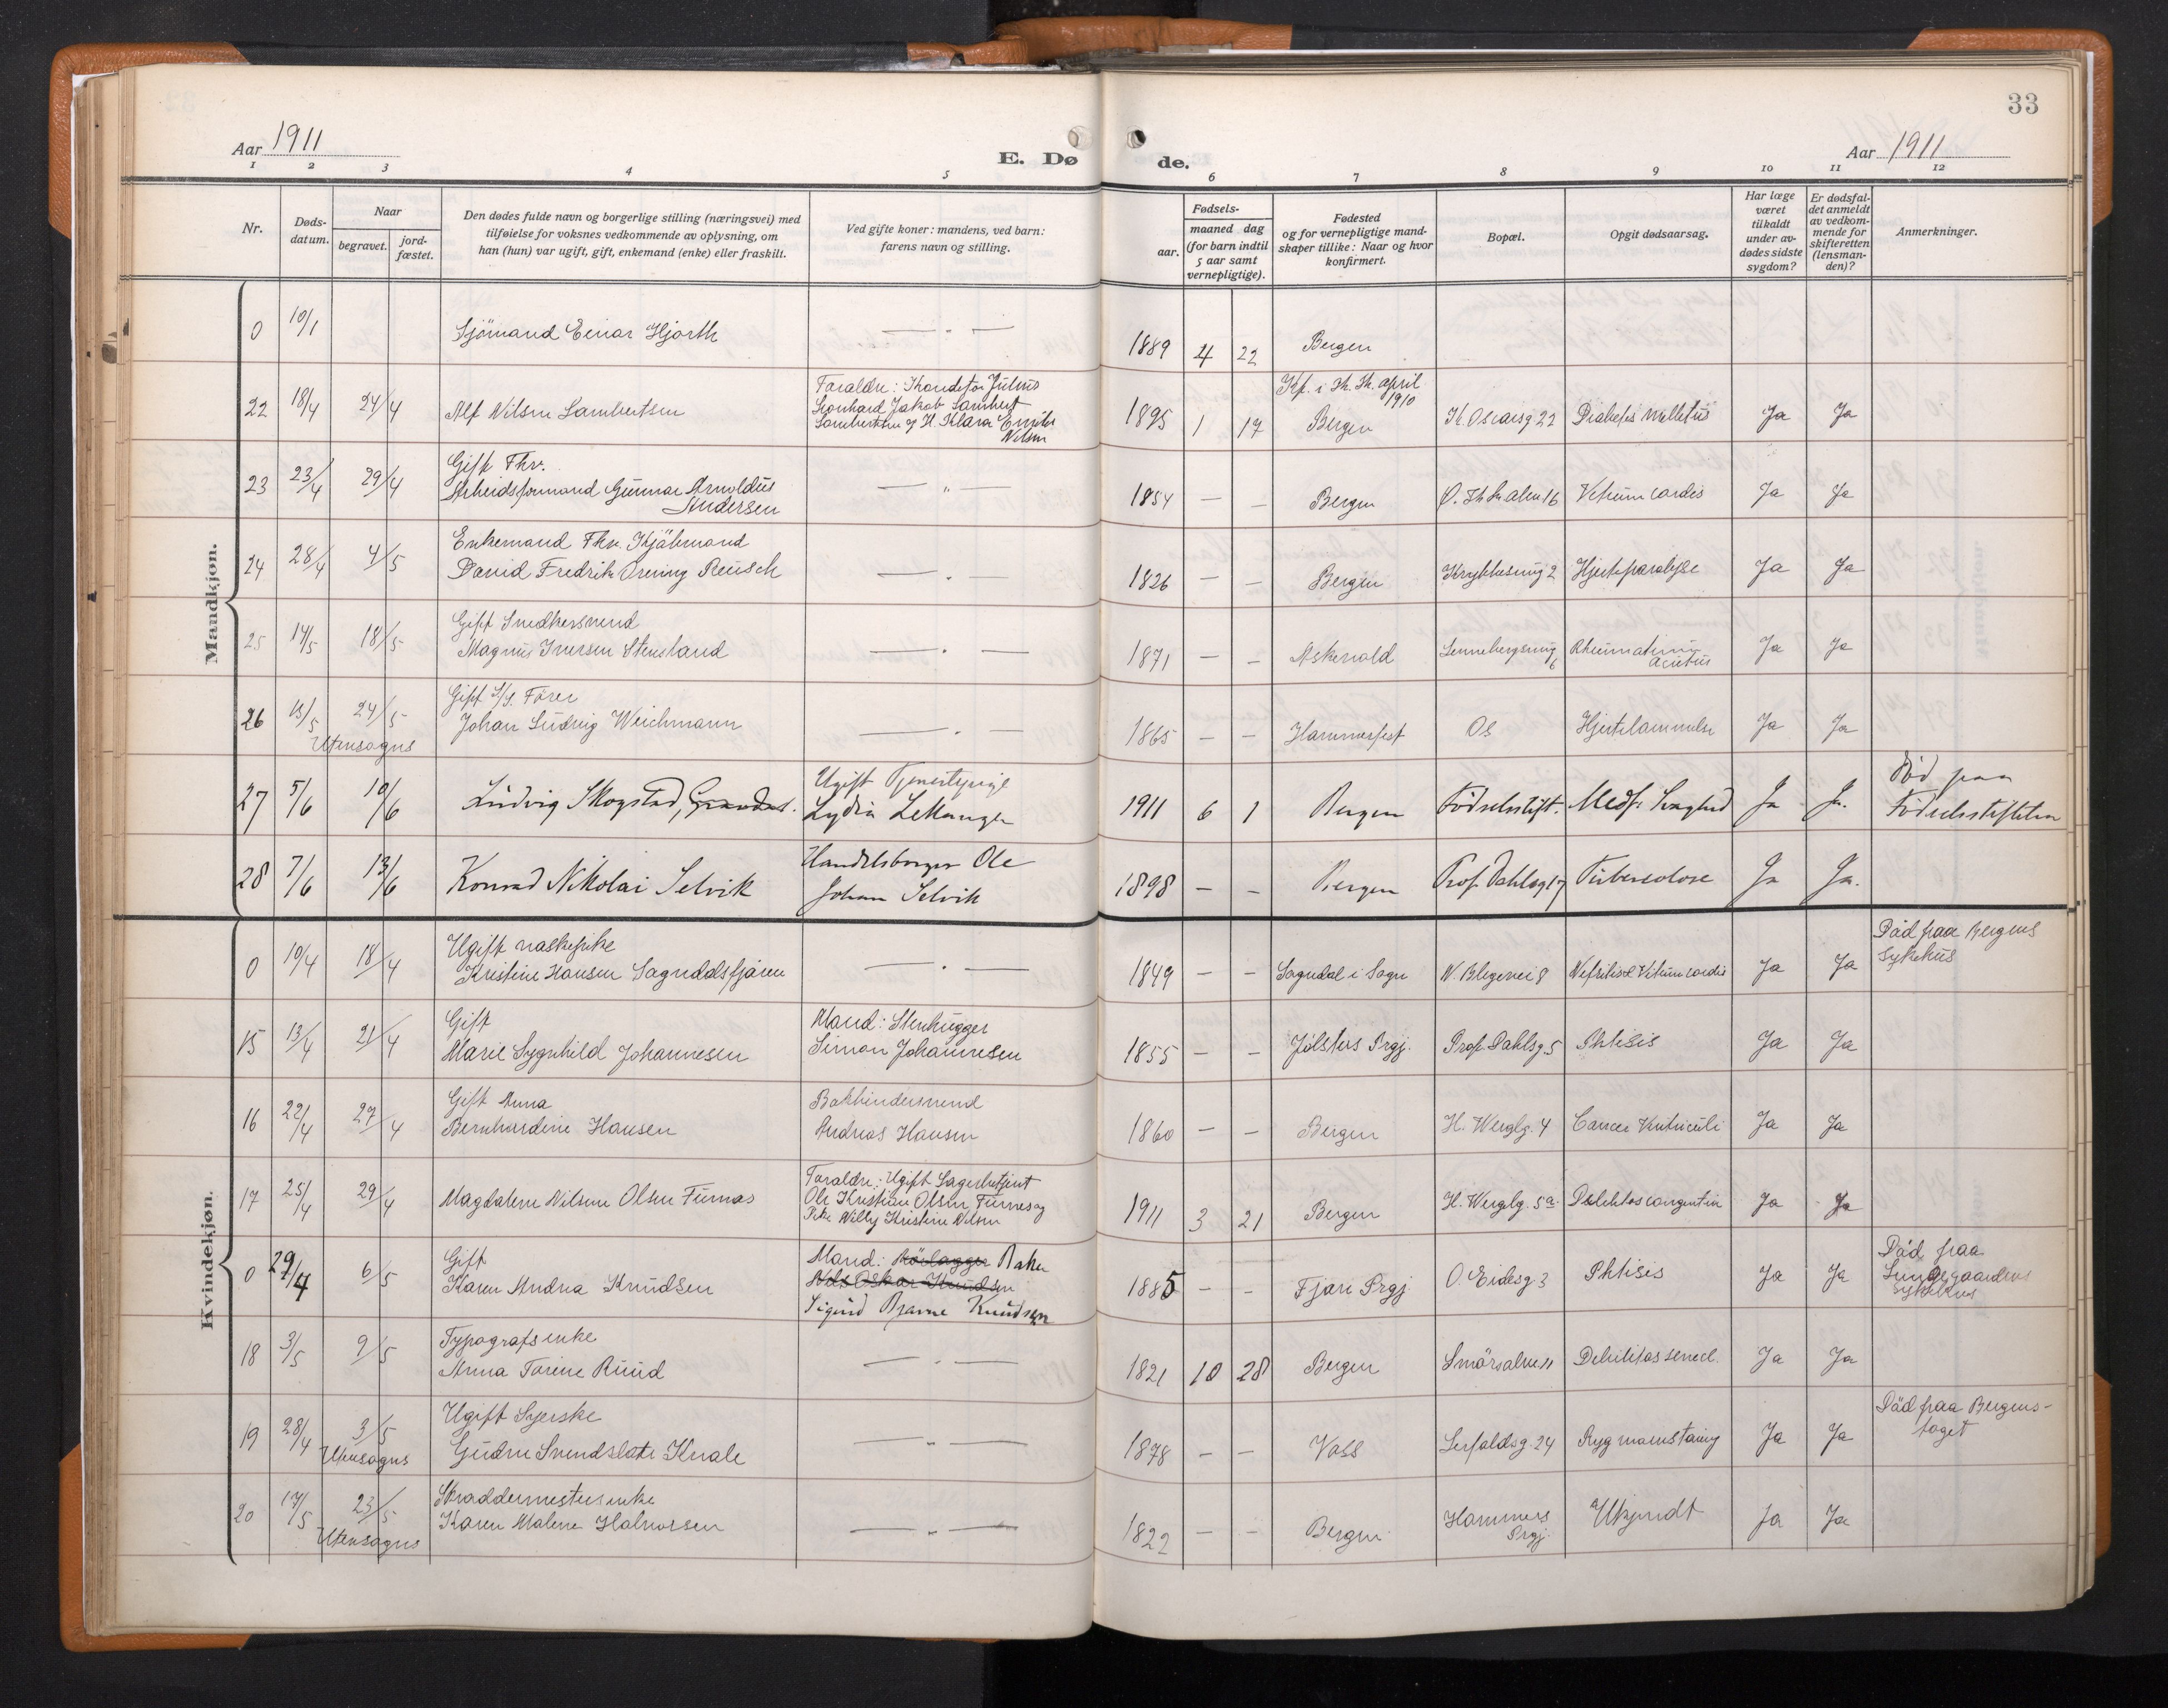 33
Aar 1911
E. Dø
de.
Aar 1911
1 2 3 4 5 6 7 8 9 10 11 12
Nr.
Døds-
datum.
Naar
begravet.
jord-
fæstet.
Den dødes fulde navn og borgerlige stilling (næringsvei) med
tilføielse for voksnes vedkommende av oplysning, om
han (hun) var ugift, gift, enkemand (enke) eller fraskilt.
Ved gifte koner: mandens, ved barn:
farens navn og stilling.
Fødsels-
aar.
maaned dag
(for barn indtil
5 aar samt
vernepligtige).
Fødested
og for vernepligtige mand-
skaper tillike: Naar og hvor
konfirmert.
Bopæl.
Opgit dødsaarsag.
Har læge
været
tilkaldt
under av-
dødes sidste
sygdom?
Er dødsfal-
det anmeldt
av vedkom-
mende for
skifteretten
(lensman-
den)?
Anmerkninger.
Mandkjøn.
0 10/1 Sjömand Einar Hjorth — " — 1889 4 22 Bergen
22 18/4 24/4 Alf Nilsen Lambertsen
Foraldre: Konditor Julius
Leonhard Jakob Lambert
Lambertsen og H. Klara Emilie
Nilsen
1895 1 17
Kf. i Jh. Kk. april
1910
Bergen K. Oscarsg 22 Diabetes mellitus Ja Ja
23 23/4 29/4 Gift Fhv.
Arbeidsformand Gunnar Arnoldus
Andersen
— " — 1854 — — Bergen Ø. 16 Vitium cordis Ja Ja
24 28/4 4/5 Enkemand Fhv. Kjøbmand
David Fredrik Reusch
— " 1826 — — Bergen 2 Hjerteparalyse Ja Ja
25 14/5 18/5 Gift Snedkersvend
Magnus Iversen Stensland
— " — 1871 — — Askevold 6 Rheumatismus
Acutus
Ja Ja
26 15/5 24/5 Gift S/S. Förer
Utensogns Johan Ludvig Weichmann
— " — 1865 — — Hammerfest Os Hjertelammelse Ja Ja
27 5/6 10/6 Ludvig Skogstad,
Ugift Tjenestepige
Lydia Lekanger
1911 6 1 Bergen Fødselsstift. Medf. Svaghed Ja Ja.
Död paa
Fødselsstiftelsen
28 7/6 13/6 Konrad Nikolai Selvik
Handelsborger Ole
Johan Selvik
1898 — — Bergen Prof. Dahlsg 17 Tuberculose Ja Ja.
Kvindekjøn.
0 10/4 18/4 Ugift vaskepike
Kristine Hansen Sogndalsfjæren
— " — 1849 — — Sogndal i Sogn N. Blegevei 8 Nefritis & Vitium cordis Ja Ja
Död paa Bergens
Sykehus
15 13/4 21/4 Gift
Marie Sygnhild Johannesen
Mand: Stenhugger
Simon Johannesen
1855 — — Jölsters Prgj. Prof. Dahlsg. 5 Phtisis Ja Ja
16 22/4 27/4 Gift Anna
Bernhardine Hansen
Bokbindersvend
Andreas Hansen
1860 — — Bergen H. Wergelg. 4 Cancer Ventriculi Ja Ja
17 25/4 29/4 Magdalene Nilsine Olsen Furnæs
Foraldre: Ugift Lagerbetjent
Ole Kristian Olsen Furnes og
Pike Willy Kristine Nilsen
1911 3 21 Bergen H. Wergelg. 5a. Ja Ja
0 29/4 6/5 Gift
Karen Andrea Knudsen
Mand: Rörlægger Baker
Nils Oskar Knudsen
Sigurd Bjarne Knudsen
1885 — — Fjære Prgj. O. Eidesg 3 Phtisis Ja Ja
Död paa
Lungegaardens
sykehus
18 3/5 9/5 Typografs enke
Anna Torine Ruud
— " — 1821 10 28 Bergen Smörsalm. 11 Debilitas senecl. Ja Ja
19 28/4 3/5 Ugift Syerske
Utensogns Gudrun Svendslate Kvale
— " — 1878 — — Voss Lerfaldsg. 24 Ja Ja
Död paa Bergens-
toget
20 17/5 23/5 Skræddermesters enke
Utensogns Karen Malene Halvorsen
— " — 1822 — — Bergen Hammers
Prgj.
Ukjendt Ja Ja